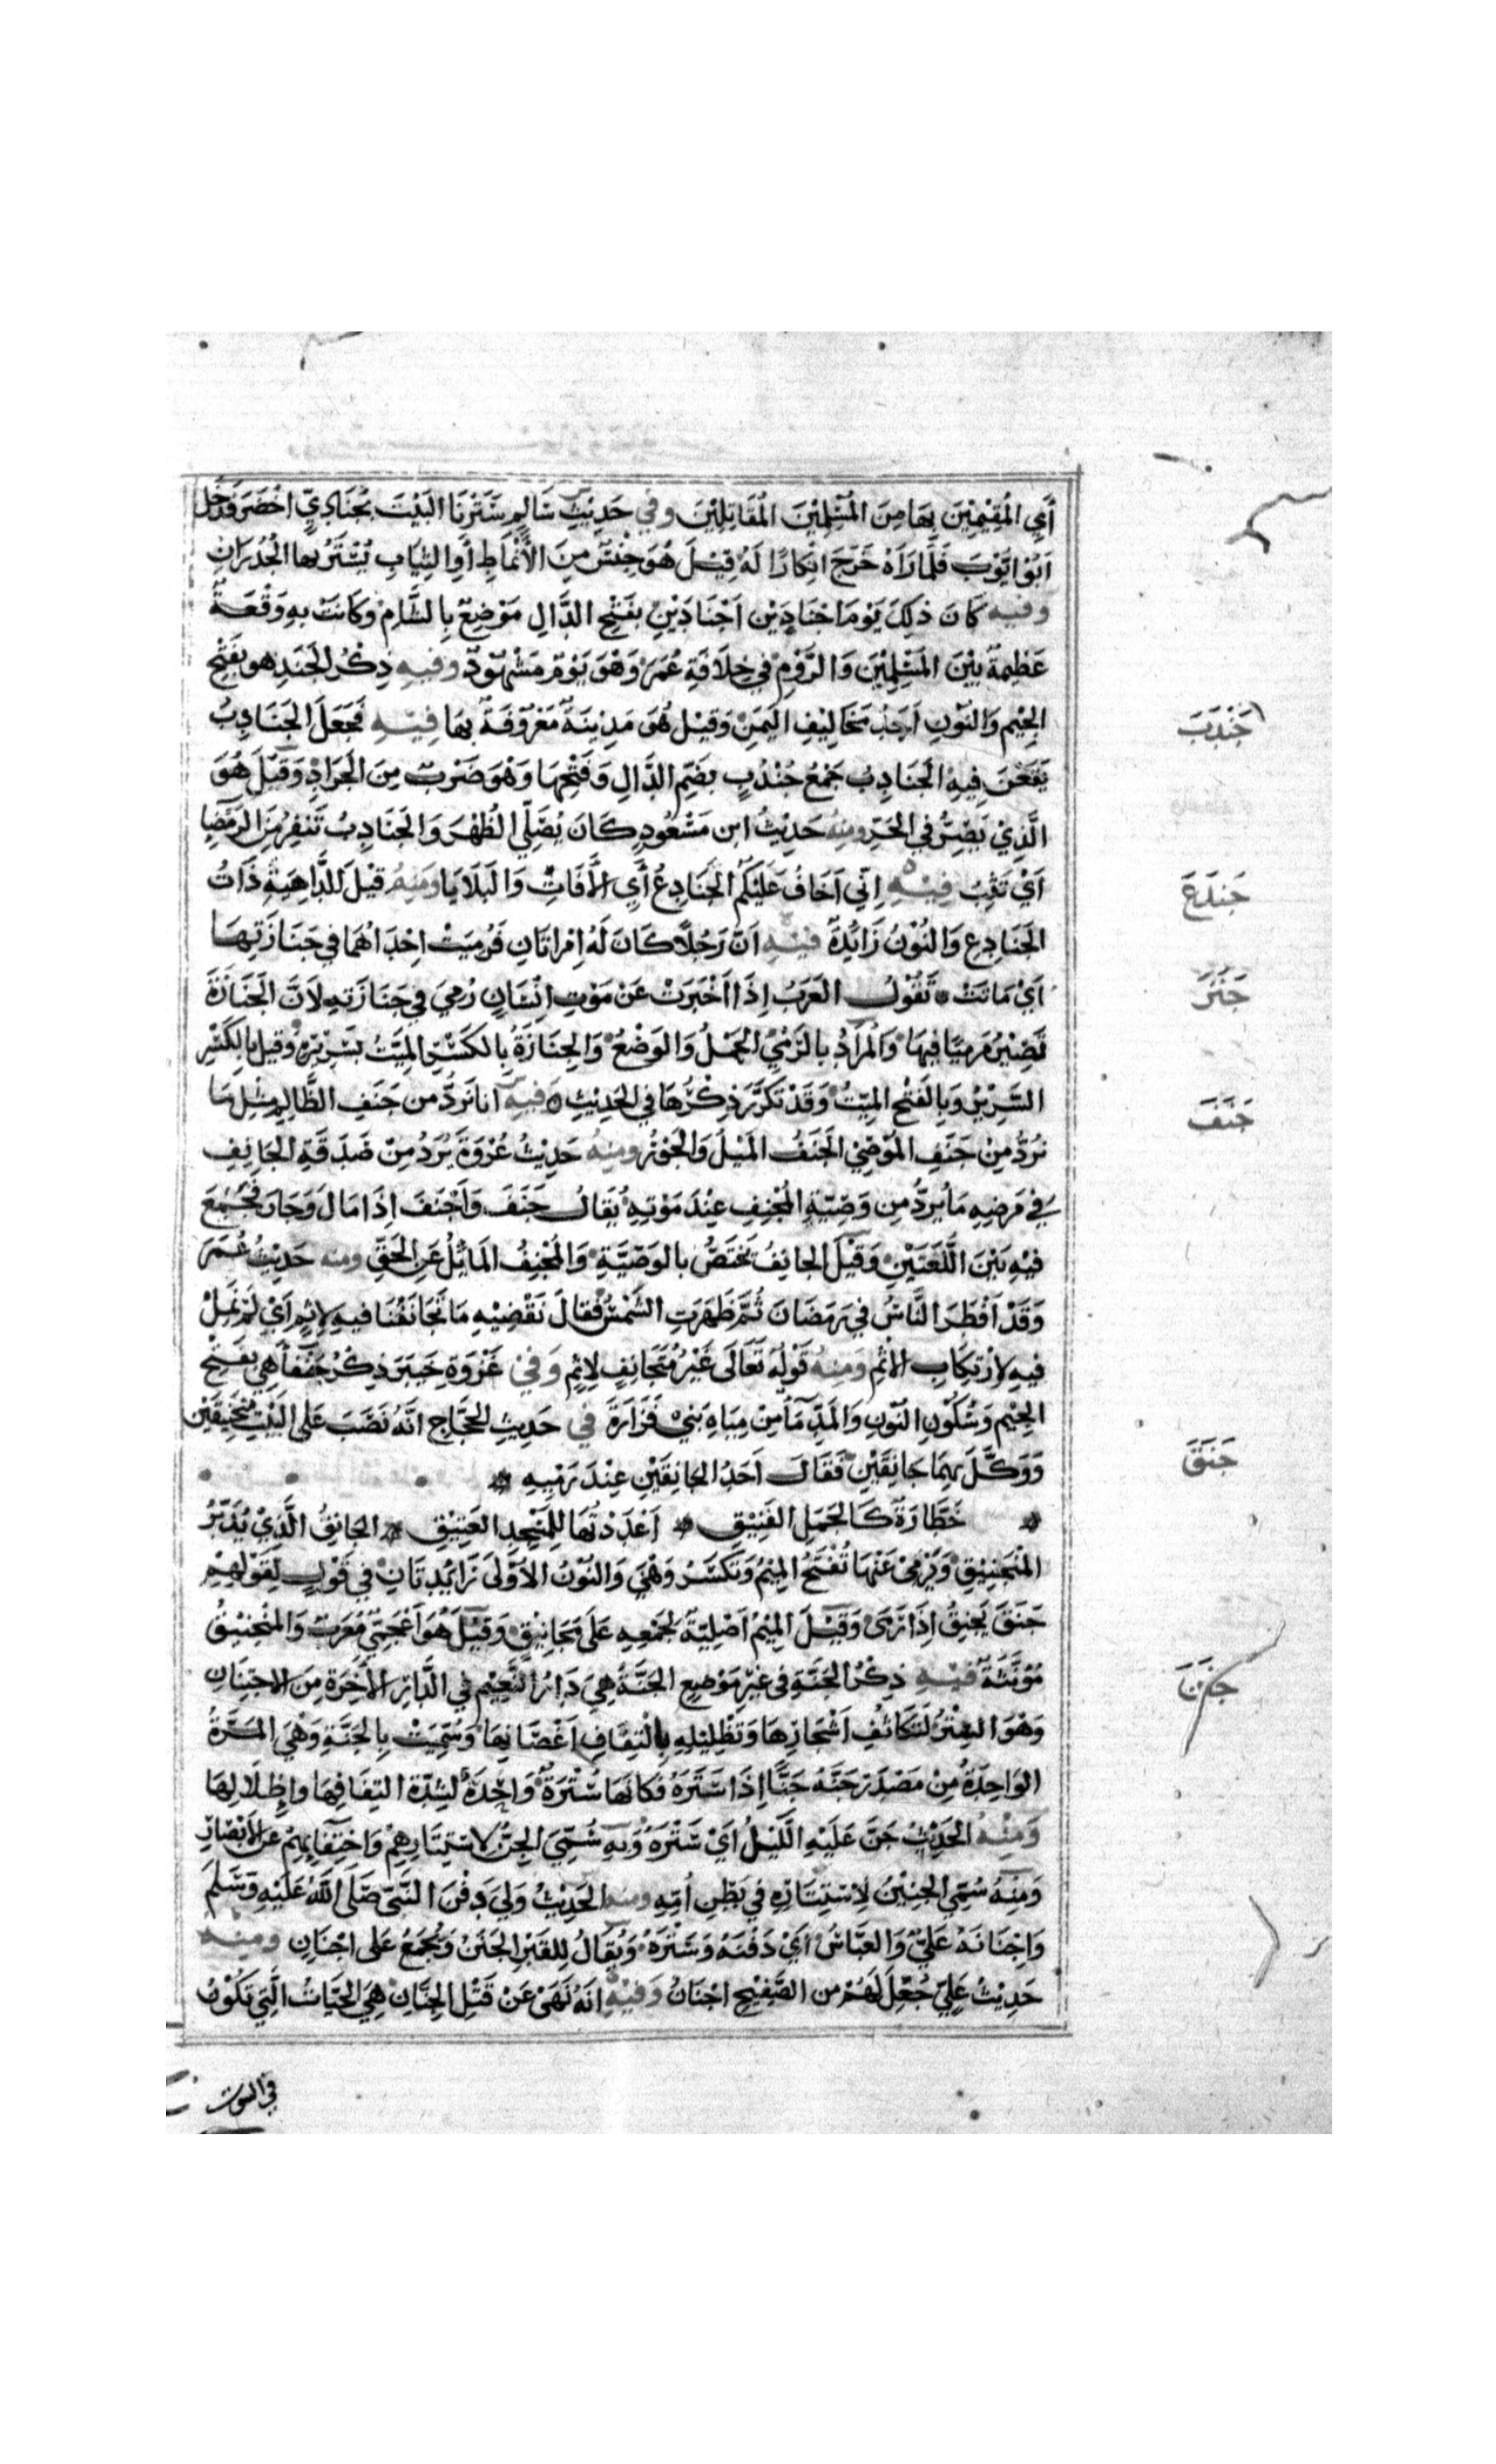 أَيِ الْمُقِيْمِيْنَ بِهَا مِنَ الْمُسْلِمِيْنَ الْمُقَاتِلِيْنَ وفي حَدِيْثِ سَالِمٍ سَتَرْنَا الْبَيْتَ بِجُنَادِيٍّ اَخْضَرَ فَدَخَلَ
اَبُوْ اَيُّوْبَ فَلَمَّا رَآهُ خَرَجَ اِنْكَارًا لَهُ قِيْلَ هُوَ جِنْسٌ مِنَ الْأَنْمَاطِ أَوِ الثِّيَابِ يُسْتَرُ بها الْجُدْرَانُ
وفيه كَانَ ذلِكَ يَوْمَ اَجْنَادَيْنِ اَجْنَادَيْنِ بفَتْحِ الدَّالِ مَوْضِعٌ بِالشَّامِ وكَانَتْ بِهِ وَقْعَةٌ
عَظِيمَةٌ بَيْنَ الْمُسْلِمِيْنَ وَالرُّوْمِ في خِلَافَةِ عُمَرَ وَهْوَ يَوْمٌ مَشْهُوْدٌ وفيهِ ذِكْرُ الْجَنَدِ هو بفَتْحِ
الجِيْمِ وَالنُّوْنِ اَحَدُ مَخَالِيْفِ الْيَمَنِ وَقِيْلَ هُوَ مَدِيْنَةٌ مَعْرُوْفَةٌ بِهَا فِيْهِ فَجَعَلَ الْجَنَادِبُ
جَنْدَبَ
يَقَعْنَ فِيهِ الْجَنَادِبُ جَمْعُ جُنْدُبٍ بِضَمِّ الدَّالِ وَفَتْحِهَا وَهْوَ ضَرْبٌ مِنَ الْجَرَادِ وَقِيْلَ هُوَ
الَّذِيْ يَصِرُّ فِي الْحَرِّ ومِنْهُ حَدِيْثُ ابنِ مَسْعُوْدٍ كَانَ يُصَلِّي الظُّهْرَ وَالْجَنَادِبُ تَنْفِرُ مِنَ الرَّمْضَاءِ
اَيْ تَثِبُ فِيْهِ اِنِّي اَخَافُ عَلَيْكُمُ الْجَنَادِعَ أَيِ الْآفَاتِ وَالْبَلَايَا وَمِنْهُ قِيْلَ لِلدَّاهِيَةِ ذَاتُ
جَنَدَعَ
الْجَنَادِعِ وَالنُّوْنُ زَائِدَةٌ فيه اَنَّ رَجُلًا كَانَ لَهُ اِمْرَاَتَانِ فَرُمِيَتْ اِحْدَاهُمَا في جَنَازَتِهَا
اَيْ مَاتَتْ تَقُوْلُ الْعَرَبُ إِذَا أَخْبَرَتْ عَنْ مَوْتِ اِنْسَانٍ رُمِيَ فِي جَنَازَتِهِ لِاَنَّ الْجَنَازَةَ
جَنَزَ
تَصِيْرُ مَرْمِيًّا فِيهَا وَالْمُرَادُ بِالرَّمْيِ الْحَمْلُ وَالْوَضْعُ وَالْجِنَازَةُ بِالْكَسْرِ الْمَيِّتُ بِسَرِيْرِهِ وَقِيْلَ بِالْكَسْرِ
السَّرِيْرُ وَبِالْفَتْحِ الْمَيِّتُ وَقَدْ تَكَرَّرَ ذِكْرُهَا فِي الْحَدِيْثِ وفيه انا نَرُدُّ مِن جَنَفِ الظَّالِمِ مِثْلَ مَا
جَنَفَ
نَرُدُّ مِنْ جَنَفِ الْمُوْصِيْ الْجَنَفُ الْمَيْلُ وَالْجَوْرُ ومِنْهُ حَدِيْثُ عُرْوَةَ يُرَدُّ مِنْ صَدَقَةِ الْجَانِفِ
فِي مَرَضِهِ مَا يُرَدُّ مِن وَصِيَّةِ الْمُجْنِفِ عِنْدَ مَوْتِهِ يُقَالُ جَنَفَ وَاَجْنَفَ اِذَا مَالَ وَجَارَ فَجَمَعَ
فِيْهِ بَيْنَ اللُّغَتَيْنِ وَقِيْلَ الجانِفُ يَخْتَصُّ بالْوَصِيَّةِ وَالْمُجْنِفُ الْمَائِلُ عَنِ الْحَقِّ ومنه حَدِيْثُ عُمَرَ
وَقَدْ اَفْطَرَ النَّاسُ فِي رَمَضَانَ ثُمَّ ظَهَرَتِ الشَّمْسُ فَقَالَ نَقْضِيْهِ مَا تَجَانَفْنَا فيهِ لِاِثْمٍ اَيْ لَمْ نَمِلْ
فيهِ لِارْتِكَابِ الْاِثْمِ وَمِنْهُ قَوْلُهُ تَعَالَى غَيْرَ مُتَجَانِفٍ لِإِثْمٍ وَفِيْ غَزْوَةِ خَيْبَرَ ذِكْرُ جَنْفَاءَ هِيَ بفَتْحِ
الْجِيْمِ وَسُكُوْنِ النُّوْنِ وَالْمَدِّ مَاءٌ مِنْ مِيَاهِ بَنِي فَزَارَةَ في حَدِيثِ الْحَجَّاجِ اَنَّهُ نَصَبَ عَلَى الْبَيْتِ مَنْجَنِيْقَيْنِ
وَوَكَّلَ بِهِمَا جَانِقَيْنِ فَقَالَ اَحَدُ الْجَانِقَيْنِ عِنْدَ رَمْيِهِ
جَنَقَ
خَطَّارَةٌ كَالْجَمَلِ الْفَنِيْقِ اَعْدَدْتُهَا لِلْمَسْجِدِ الْعَتِيْقِ الجانِقُ الَّذِيْ يُدَبِّرُ
الْمَنْجَنِيْقَ وَيَرْمِيْ عَنْهَا تُفْتَحُ الْمِيْمُ وَتُكْسَرُ وَهْيَ وَالنُّوْنُ الْاُوْلَى زَائِدَتَانِ في قَوْلٍ لِقَوْلِهِمْ
جَنَقَ يَجْنِقُ اِذَا رَمَى وَقِيْلَ الْمِيْمُ اَصْلِيَّةٌ لِجَمْعِهِ عَلَى مَجَانِيْقَ وَقِيْلَ هُوَ اَعْجَمِيٌّ مُعَرَّبٌ وَالْمَنْجَنِيْقُ
مُؤَنَّثَةٌ فيهِ ذِكْرُ الْجَنَّةِ فِي غَيْرِ مَوْضِعٍ الْجَنَّةُ هِيَ دَارُ النَّعِيْمِ فِي الدَّارِ الْاٰخِرَةِ مِنَ الِاجْتِنَانِ
جَنَنَ
وَهْوَ السَّتْرُ لِتَكَاثُفِ اَشْجَارِهَا وَتَظْلِيْلِهِ بِالْتِفَافِ اَغْصَانِهَا وَسُمِّيَتْ بِالْجَنَّةِ وَهْيَ الْمَرَّةُ
الْوَاحِدَةُ مِنْ مَصْدَرِ جَنَّهُ جَنًّا اِذَا سَتَرَهُ فَكَانَهَا سُتْرَةٌ وَاحِدَةٌ لِشِدَّةِ الْتِفَافِهَا وَاِظْلَالِهَا
وَمِنْهُ الْحَدِيْثُ جَنَّ عَلَيْهِ اللَّيْلُ اَيْ سَتَرَهُ وَبِهِ سُمِّيَ الْجِنُّ لِاسْتِتَارِهِمْ وَاخْتِفَائِهِمْ عَنِ الْاَبْصَارِ
وَمِنْهُ سُمِّيَ الْجَنِيْنُ لِاسْتِتَارِهِ فِي بَطْنِ اُمِّهِ ومنه الْحَدِيْثُ وَلِيَ دَفْنَ النَّبِيِّ صَلَّى اللهُ عَلَيْهِ وَسَلَّمَ
وَاِجْنَانَهُ عَلِيٌّ وَالْعَبَّاسُ اَيْ دَفْنَهُ وَسَتْرَهُ وَيُقَالُ لِلْقَبْرِ الْجَنَنُ وَيُجْمَعُ عَلَى اَجْنَانٍ ومِنْهُ
حَدِيْثُ عَلِيٍّ جُعِلَ لَهُمْ مِنَ الصَّفِيْحِ اَجْنَانٌ وَفِيْهِ اَنَّهُ نَهَى عَنْ قَتْلِ الْجِنَّانِ هِيَ الْحَيَّاتُ الَّتِي تَكُوْنُ
في البيوت